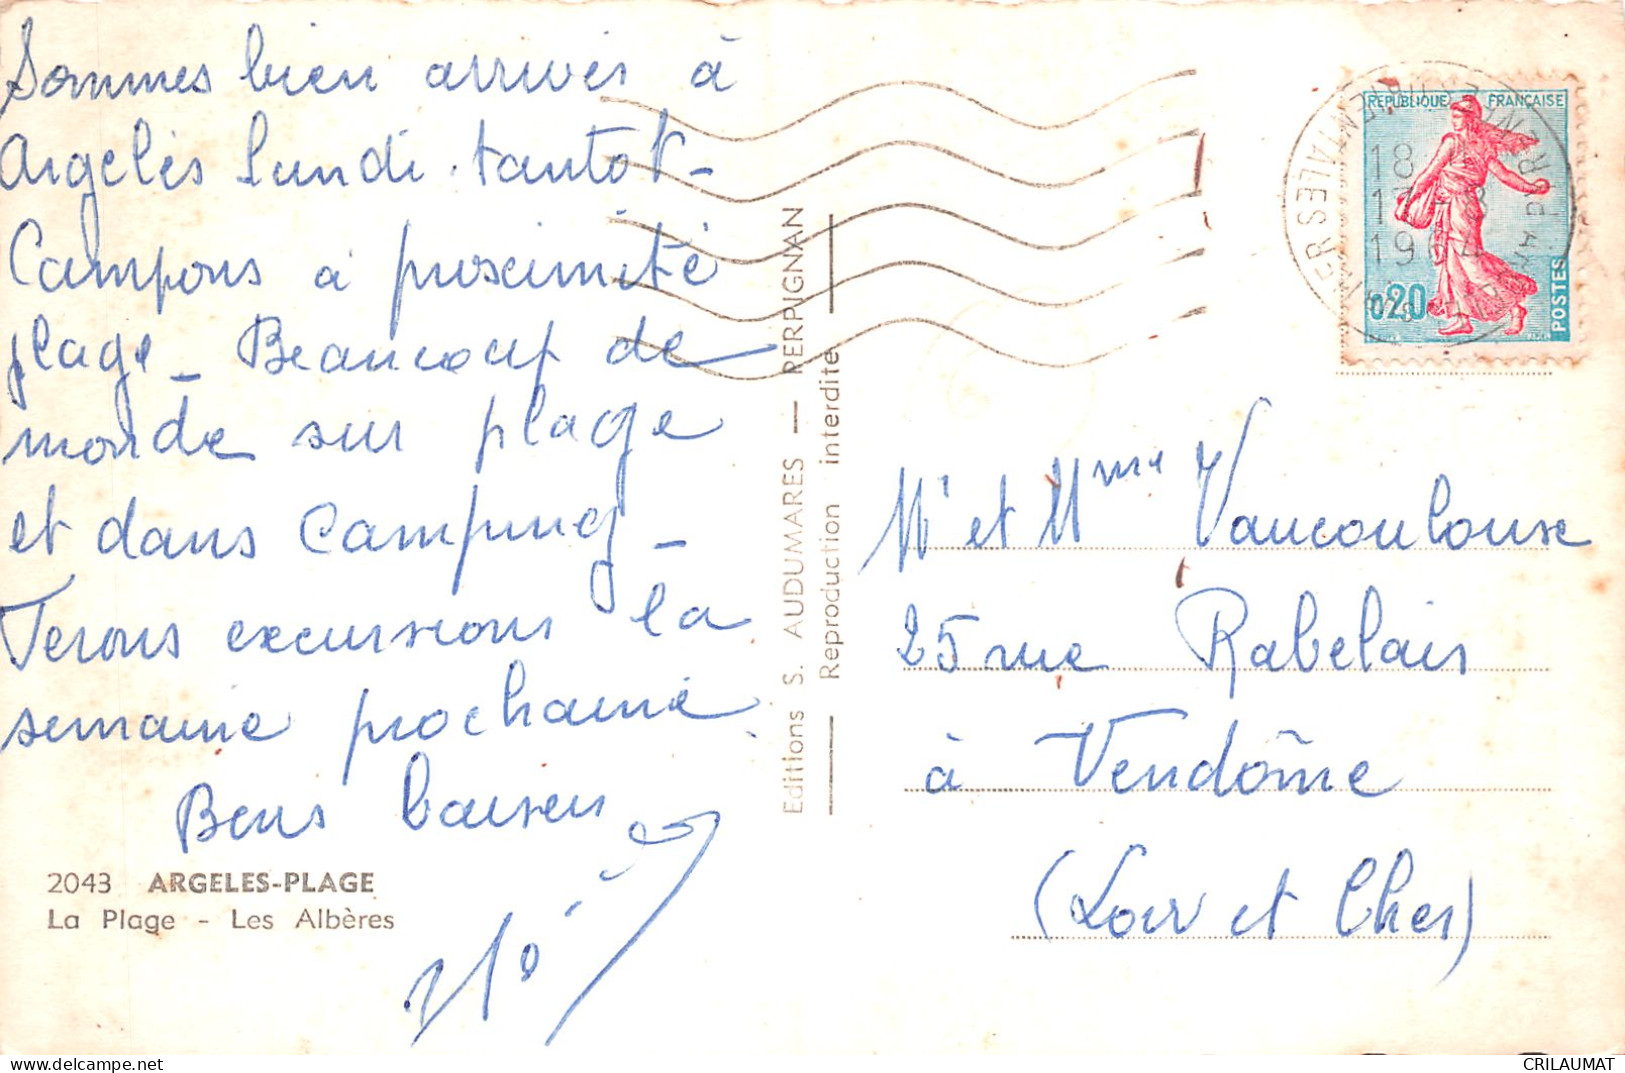 Sommes bien arrivés à
Argelès lundi tantôt -
Campons à proximité
plage - Beaucoup de
monde sur plage
et dans Camping -
Ferons excursions la
semaine prochaine.
Bons baisers
2043 ARGELES-PLAGE
La Plage - Les Albères
Editions S. AUDUMARES — PERPIGNAN
Reproduction interdite
REPUBLIQUE FRANÇAISE
0,20
POSTES
18
1964
PYRENEES ORIENTALES
Mr et Mme Vaucouloux
25 rue Rabelais
à Vendôme
(Loir et Cher)
CRILAUMAT